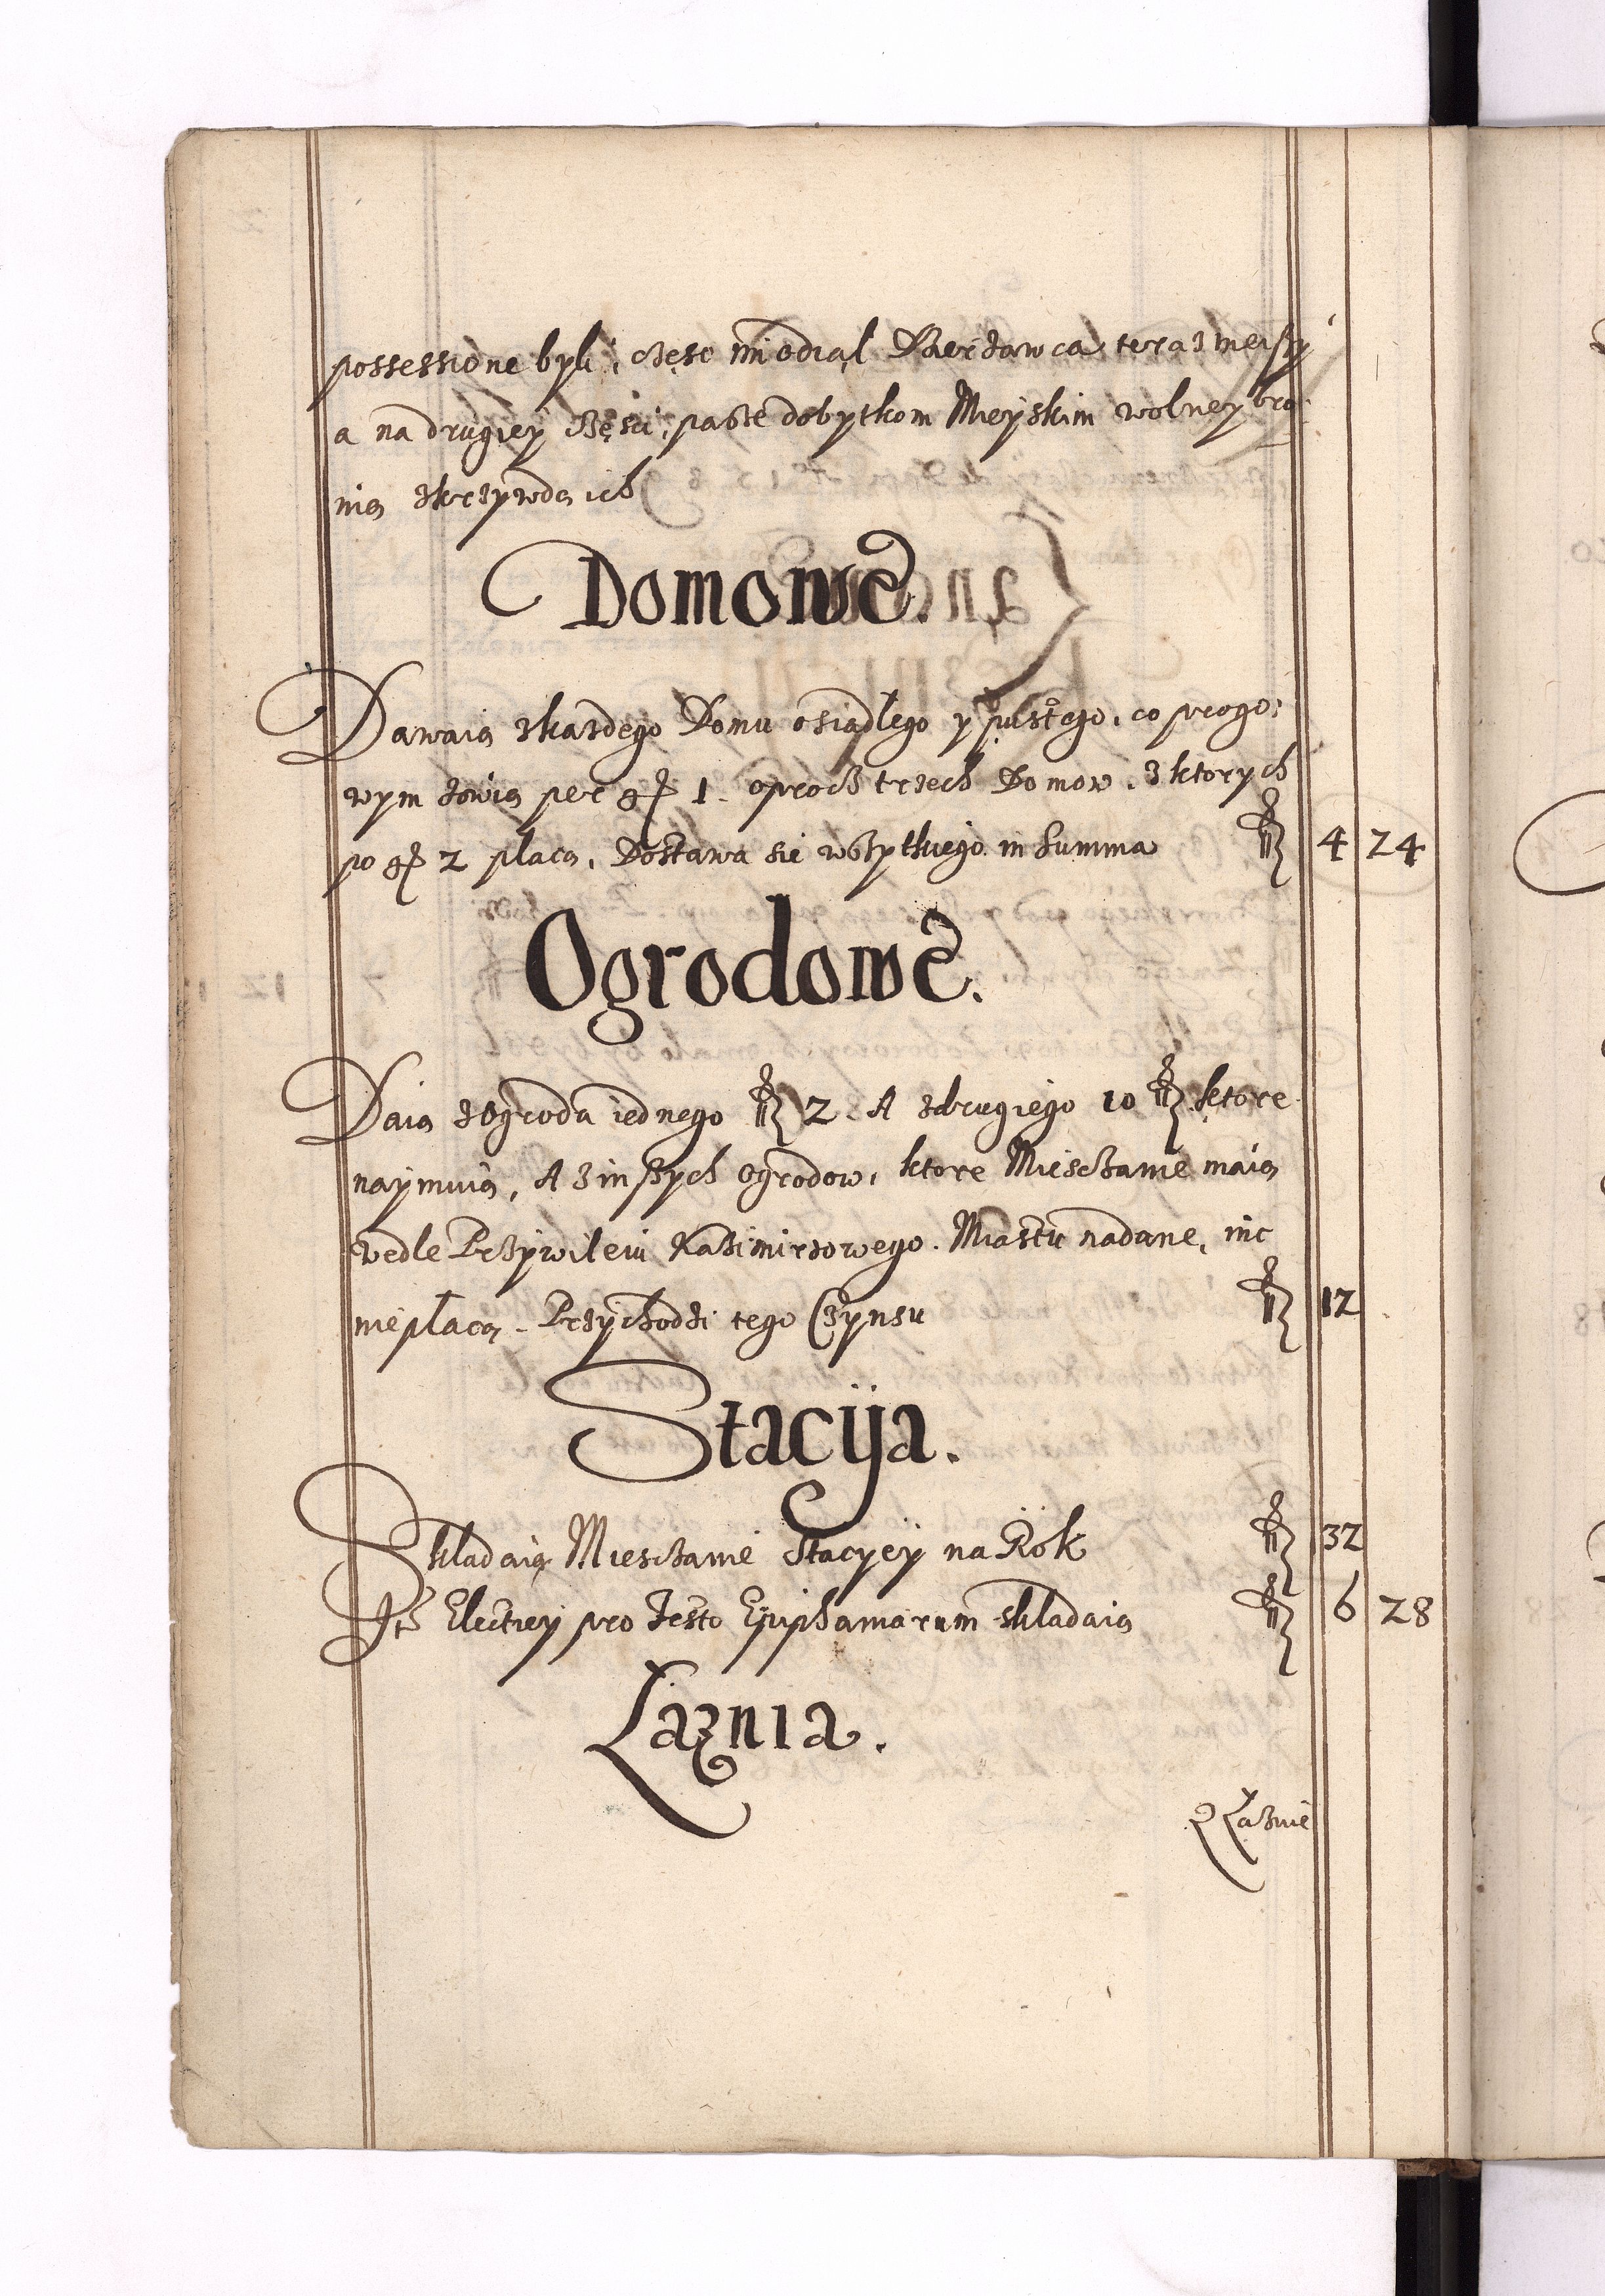 possessione byli, część im odiął Dzierżawca teraznieyszy
a na drugiey części, pasze dobytkom Mieyskim wolney bro
nią zkrzywdą ich
Domowe.
Dawaią zkazdego Domu osiadlego y pustego, co progo:
wym zowią per gr 1. oprocz trzech Domow, z ktorych
po gr 2 placą, Dostawa się wszytkiego in summa fl 4 24
Ogrodowe.
Daią zOgroda iednego fl 2. A zdrugiego 10 fl ktore
naymuią, A z inszych Ogrodow, ktore Miesczanie maią
wedle Przywileiu Kazimirzowego Miastu nadane, nic
nieplacą. Przychodzi tego Czynszu fl 12
Stacija.
Skladaią Miesczanie Stacyey na Rok fl 32
Ite Electiey pro Festo Epiphaniarum skladaią fl 6 28
Laznia.
Z Laznie